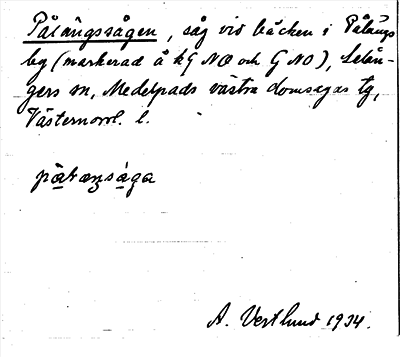 Pålängssågen, såg vid bäcken i Pålängs
by (markerad å kG NO och G NO), Selån-
gers sn, Medelpads västra domsagas tg,
Västernorrl. l.
A. Vestlund 1934.